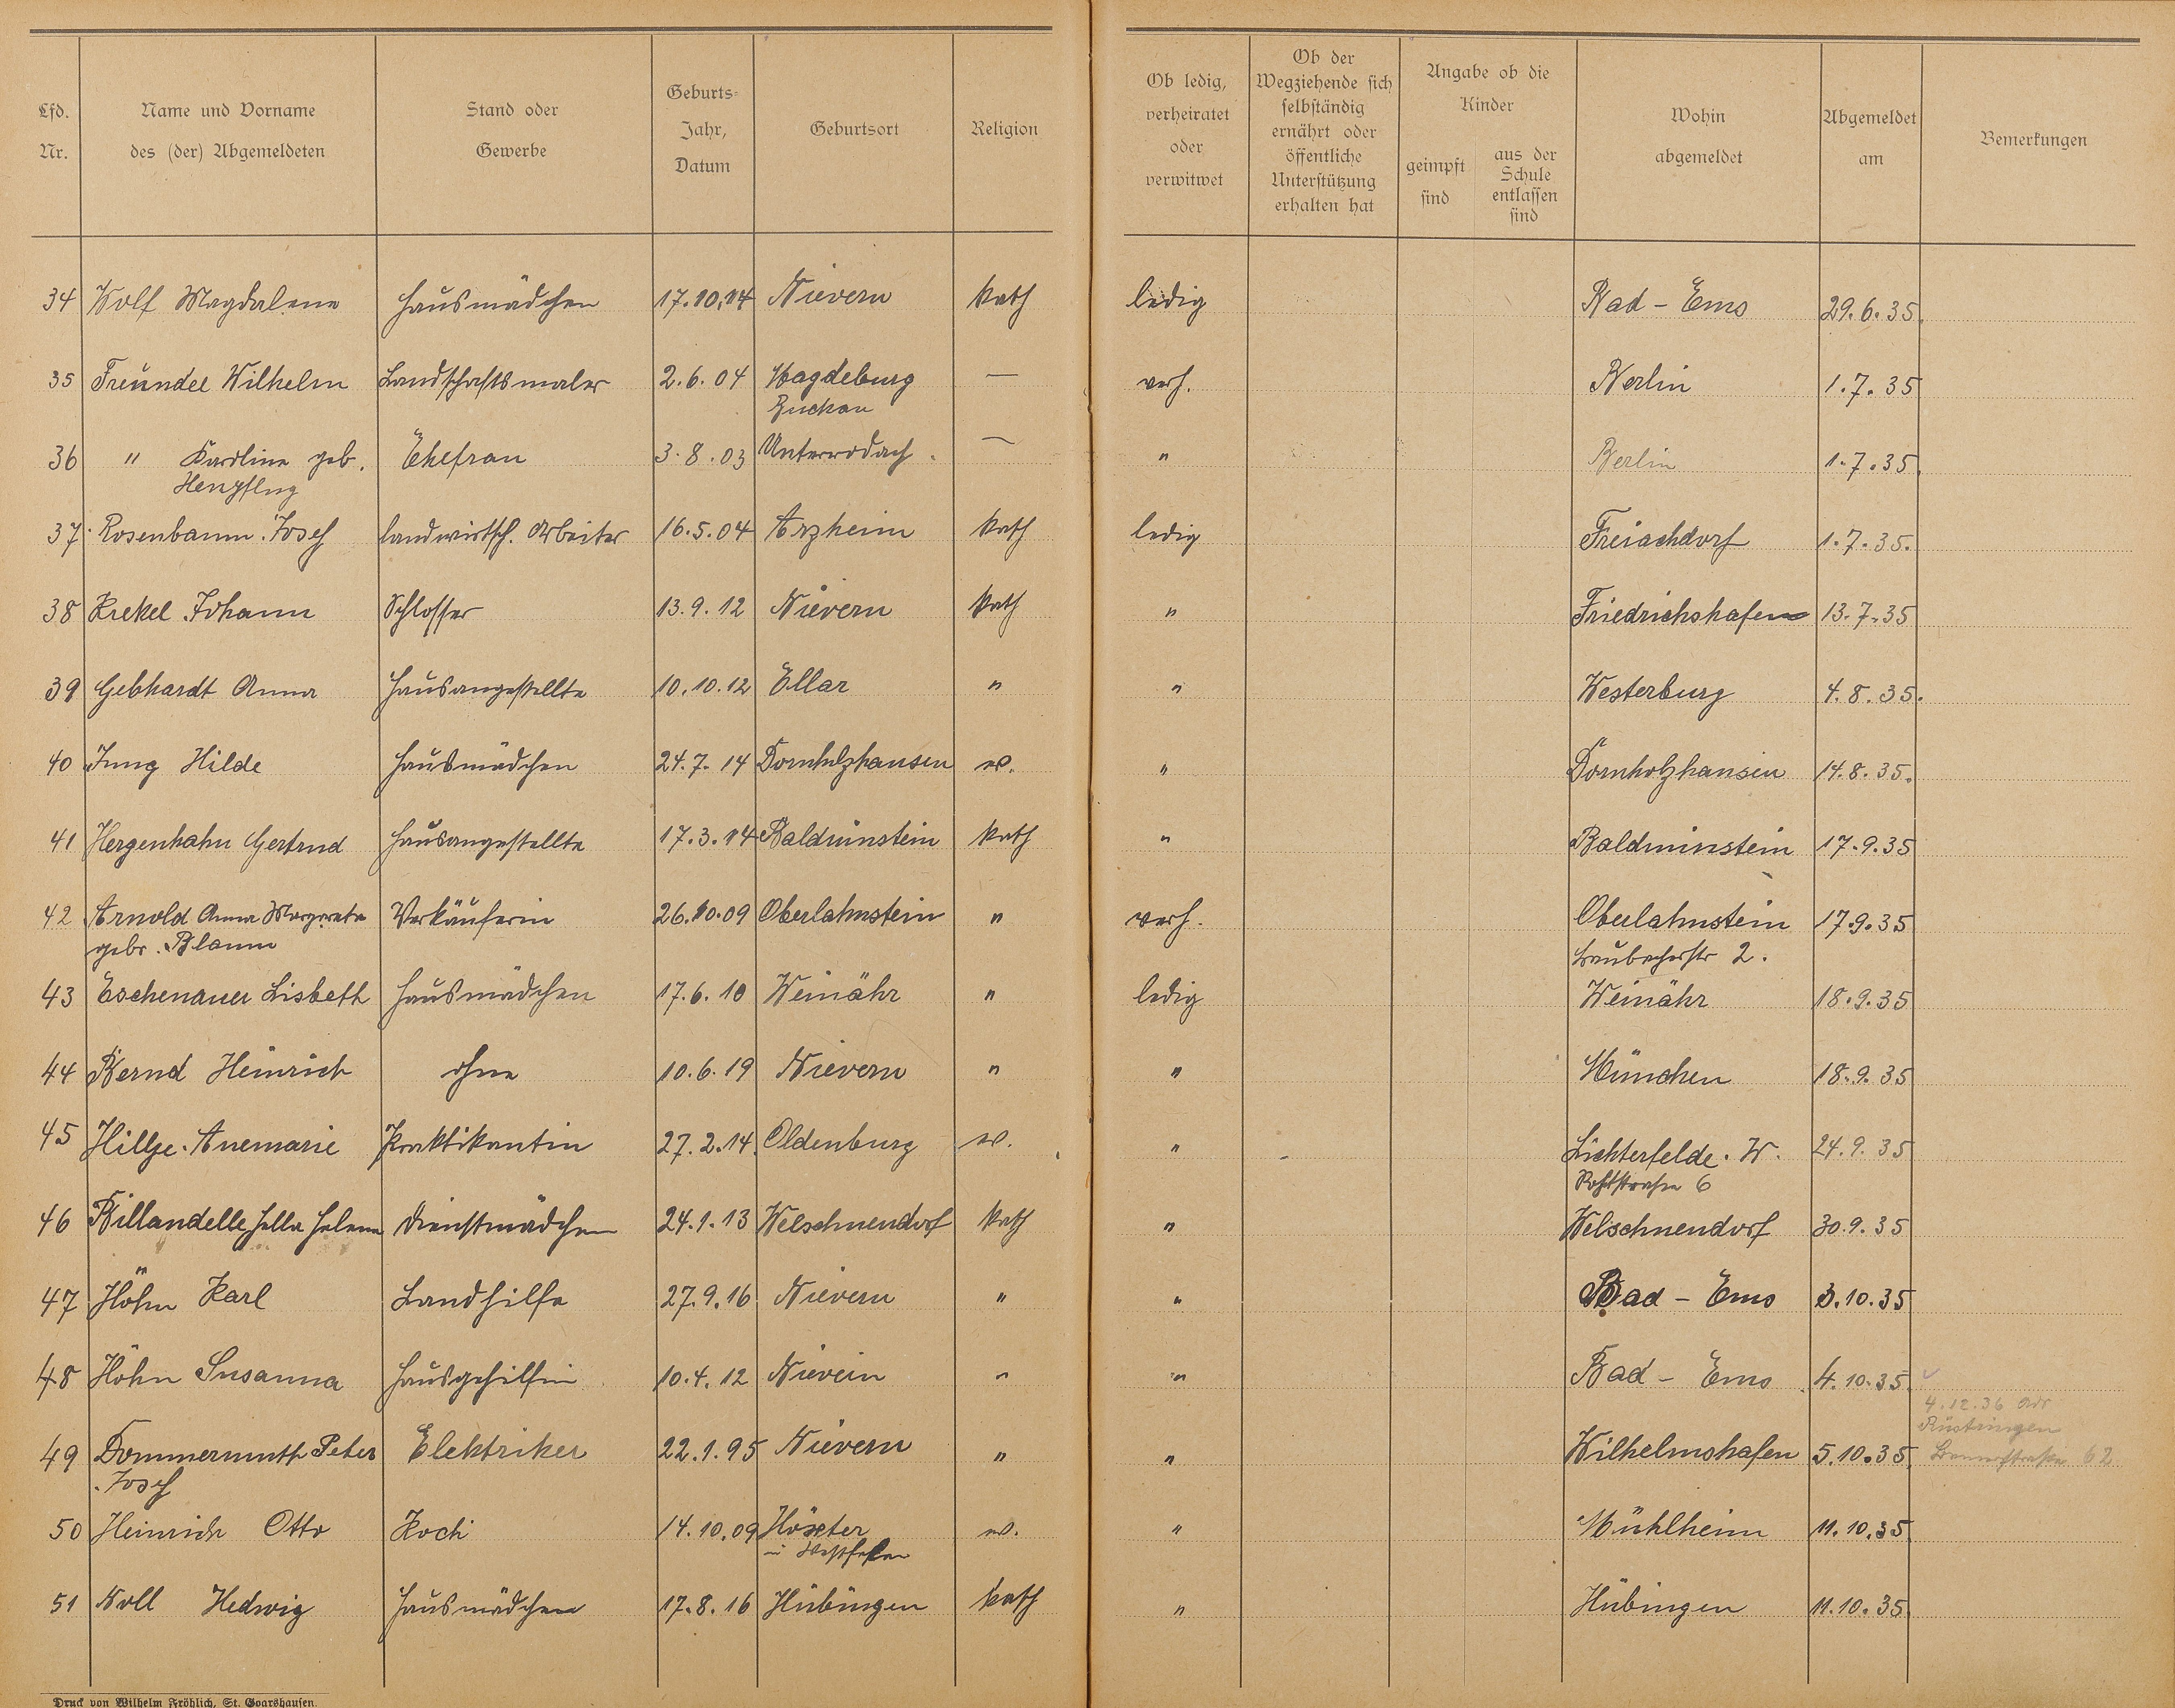 Lfd. Nr. | Name und Vorname des (der) Abgemeldeten | Stand oder Gewerbe | Geburts-Jahr, Datum | Geburtsort | Religion | Ob ledig, verheiratet oder verwitwet | Ob der Wegziehende sich selbständig ernährt oder öffentliche Unterstützung erhalten hat | Angabe ob die Kinder geimpft sind | aus der Schule entlassen sind | Wohin abgemeldet | Abgemeldet am | Bemerkungen
34 Wolf Magdalena Hausmädchen 17.10.14 Nievern kath ledig Bad-Ems 29.6.35.
35 Freundel Wilhelm Landschaftsmaler 2.6.04 Magdeburg — verh. Berlin 1.7.35
Buckau
36 " Karoline geb. Ehefrau 3.8.03 Unterrodach. — " Berlin 1.7.35.
Henpflug
37. Rosenbaum Josef landwirtsch. Arbeiter 16.5.04 Arzheim kath ledig Freirachdorf 1.7.35.
38 Krekel Johann Schlosser 13.9.12 Nievern kath " Friedrichshafen 13.7.35
39 Gebhardt Anna Hausangestellte 10.10.12 Ellar " " Westerburg 4.8.35.
40 Jung Hilde Hausmädchen 24.7.14 Dornholzhausen ev. " Dornholzhausen 14.8.35.
41 Hergenhahn Gertrud Hausangestellte 17.3.14 Balduinstein kath " Balduinstein 17.9.35
42 Arnold Anna Margareta Verkäuferin 26.10.09 Oberlahnstein " verh. Oberlahnstein 17.9.35
gebr. Blaum Laubacherstr 2.
43 Eschenauer Lisbeth Hausmädchen 17.6.10 Weinähr " ledig Weinähr 18.9.35
44 Bernd Heinrich ohne 10.6.19 Nievern " " München 18.9.35
45 Hillje Anemarie Praktikantin 27.2.14. Oldenburg ev. " Lichterfelde. W. 24.9.35
6
46 Billandelle Hella Helena Dienstmädchen 24.1.13 Welschneudorf kath " Welschneudorf 30.9.35
47 Höhn Karl Landhilfe 27.9.16 Nievern " " Bad-Ems 3.10.35
48 Höhn Susanna Hausgehilfin 10.4.12 Nievern " " Bad-Ems 4.10.35.
4.12.36
Rüstringen
49 Dommermuth Peter Elektriker 22.1.95 Nievern " " Wilhelmshafen 5.10.35. 62
Josef
50 Heinrich Otto Koch 14.10.09 Höxter ev. " Mühlheim 11.10.35.
i Westfalen
51 Noll Hedwig Hausmädchen 17.8.16 Hübingen kath " Hübingen 11.10.35.
Druck von Wilhelm Fröhlich, St. Goarshausen.